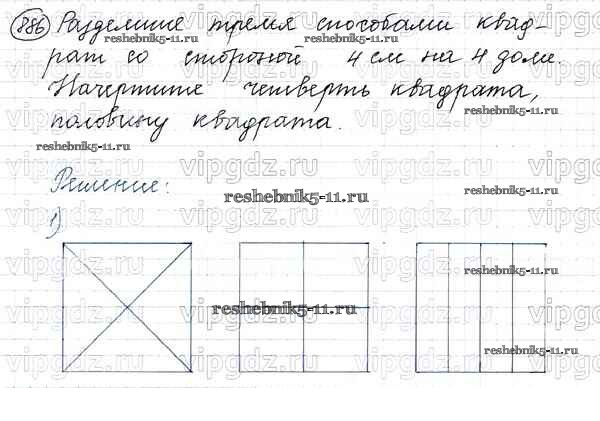 886 Разделите тремя способами квад-
рат со стороной 4 см на 4 доли.
Начертите четверть квадрата,
половину квадрата.
Решение:
1)
reshebnik5-11.ru
vipgdz.ru